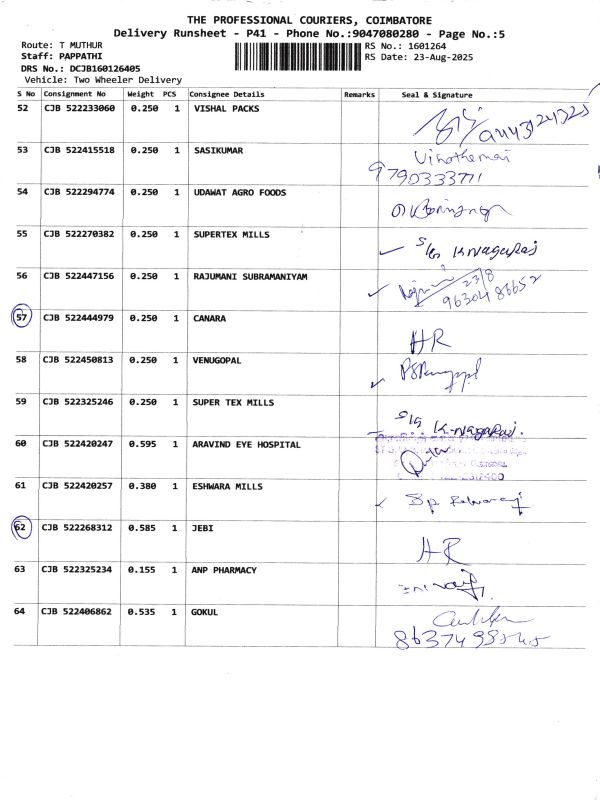 THE PROFESSIONAL COURIERS, COIMBATORE
Delivery Runsheet - P41 - Phone No.:9047080280 - Page No.:5
Route: T MUTHUR RS No.: 1601264
Staff: PAPPATHI RS Date: 23-Aug-2025
DRS No.: DCJB160126405
Vehicle: Two Wheeler Delivery
S No Consignment No Weight PCS Consignee Details Remarks Seal & Signature
52 CJB 522233060 0.250 1 VISHAL PACKS
53 CJB 522415518 0.250 1 SASIKUMAR Vinothemai
9790333771
54 CJB 522294774 0.250 1 UDAWAT AGRO FOODS
55 CJB 522270382 0.250 1 SUPERTEX MILLS K.Nagaraj
56 CJB 522447156 0.250 1 RAJUMANI SUBRAMANIYAM 23/8
57 CJB 522444979 0.250 1 CANARA HR
58 CJB 522450813 0.250 1 VENUGOPAL
59 CJB 522325246 0.250 1 SUPER TEX MILLS K.Nagaraj.
60 CJB 522420247 0.595 1 ARAVIND EYE HOSPITAL
61 CJB 522420257 0.380 1 ESHWARA MILLS
62 CJB 522268312 0.585 1 JEBI HR
63 CJB 522325234 0.155 1 ANP PHARMACY
64 CJB 522406862 0.535 1 GOKUL